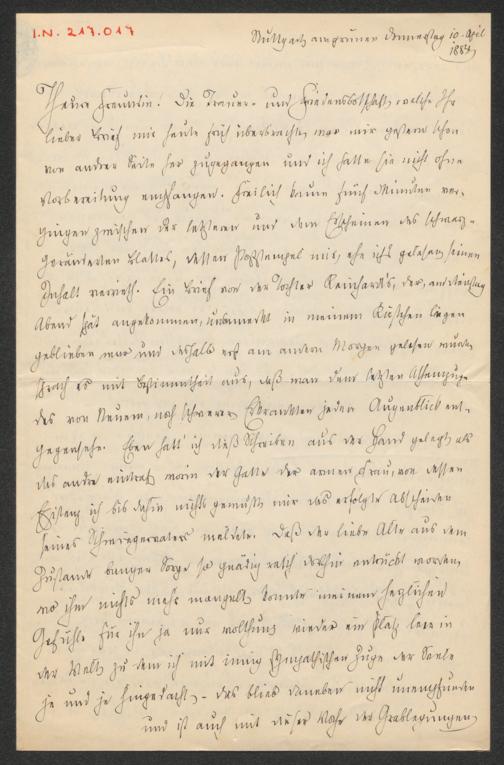 I.N. 217.017
Stuttgart am grünen Donnerstag 10. April
1884
Theure Freundin! Die Trauer- und Friedensbotschaft, welche Ihr
lieber Brief mir heute früh überbrachte, war mir gestern schon
von andrer Seite her zugegangen und ich hatte sie nicht ohne
Vorbereitung empfangen. Freilich kaum fünf Minuten ver-
gingen zwischen der letzteren und dem Erscheinen des schwarz-
geränderten Blattes, dessen Poststempel mir, ehe ich's gelesen, seinen
Inhalt verrieth. Ein Brief von der Tochter Reinhardts, der, am Dienstag
Abend spät angekommen, unbemerkt in meinem Kästchen liegen
geblieben war und deshalb erst am andern Morgen gelesen wurde,
sprach es mit Bestimmtheit aus, daß man dem letzten Athemzug
des von Neuem, noch schwerer Erkrankten jeden Augenblick ent-
gegensehe. Eben hatt' ich dieß Schreiben aus der Hand gelegt als
das andre eintraf worin der Gatte der armen Frau, von dessen
Existenz ich bis dahin nichts gewußt, mir das erfolgte Abscheiden
seines Schwiegervaters meldete. Daß der liebe Alte aus dem
Zustande banger Sorge so gnädig rasch dorthin entrückt worden,
wo ihm nichts mehr mangelt konnte meinem herzlichen
Gefühle für ihn ja nur wolthun; wieder ein Platz leer in
der Welt zu dem ich mit innig sympathischem Zuge der Seele
je und je hingedacht, – das blieb daneben nicht unempfunden
und ist auch mit dieser Nähe der Grablegungen